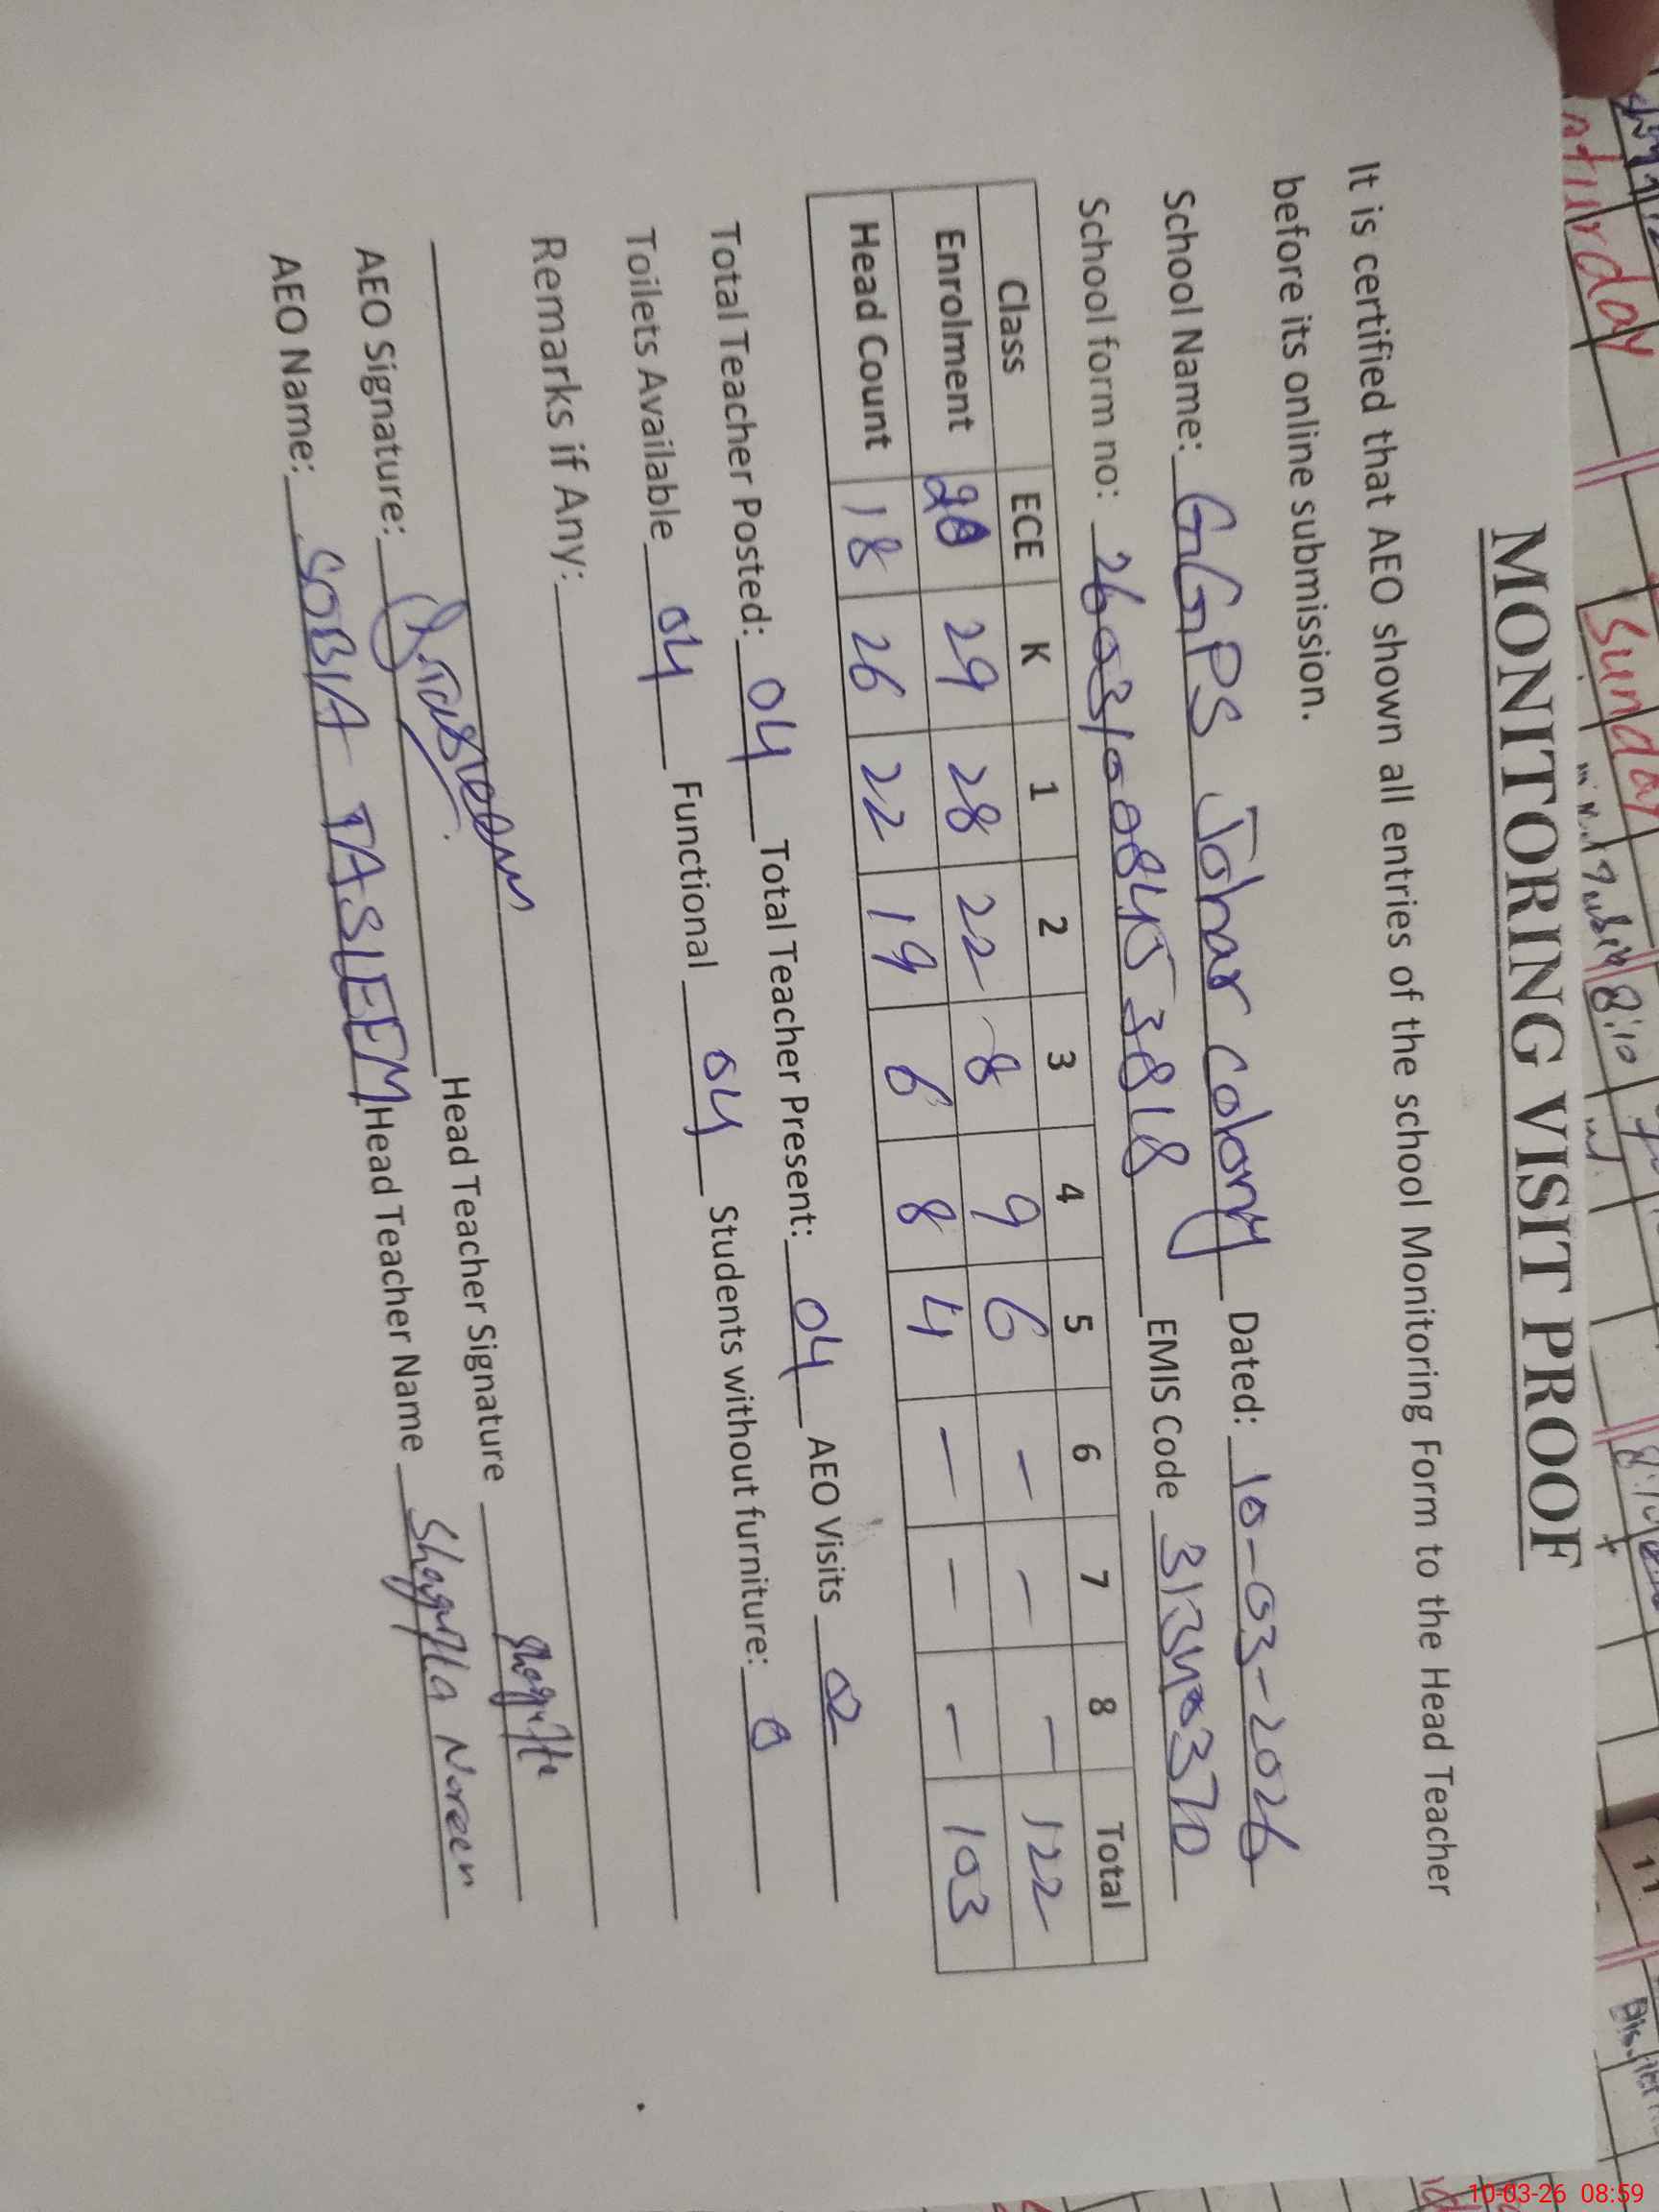 MONITORING VISIT PROOF
It is certified that AEO shown all entries of the school Monitoring Form to the Head Teacher
before its online submission.
School Name: GGPS Johar colony Dated: 10-03-2026
School form no: 260310084 EMIS Code 31340370
Class ECE K 1 2 3 4 5 6 7 8 Total
Enrolment 20 29 28 22 8 9 6 - - - 122
Head Count 18 26 22 19 6 8 4 - - - 103
Total Teacher Posted: 04 Total Teacher Present: 04 AEO Visits 02
Toilets Available 04 Functional 04 Students without furniture: 0
Remarks if Any:
AEO Signature: Head Teacher Signature Shagufta
AEO Name: SOBIA TASLEEM Head Teacher Name Shagufta Noreen
Sunday
8:10
10-03-26 08:59